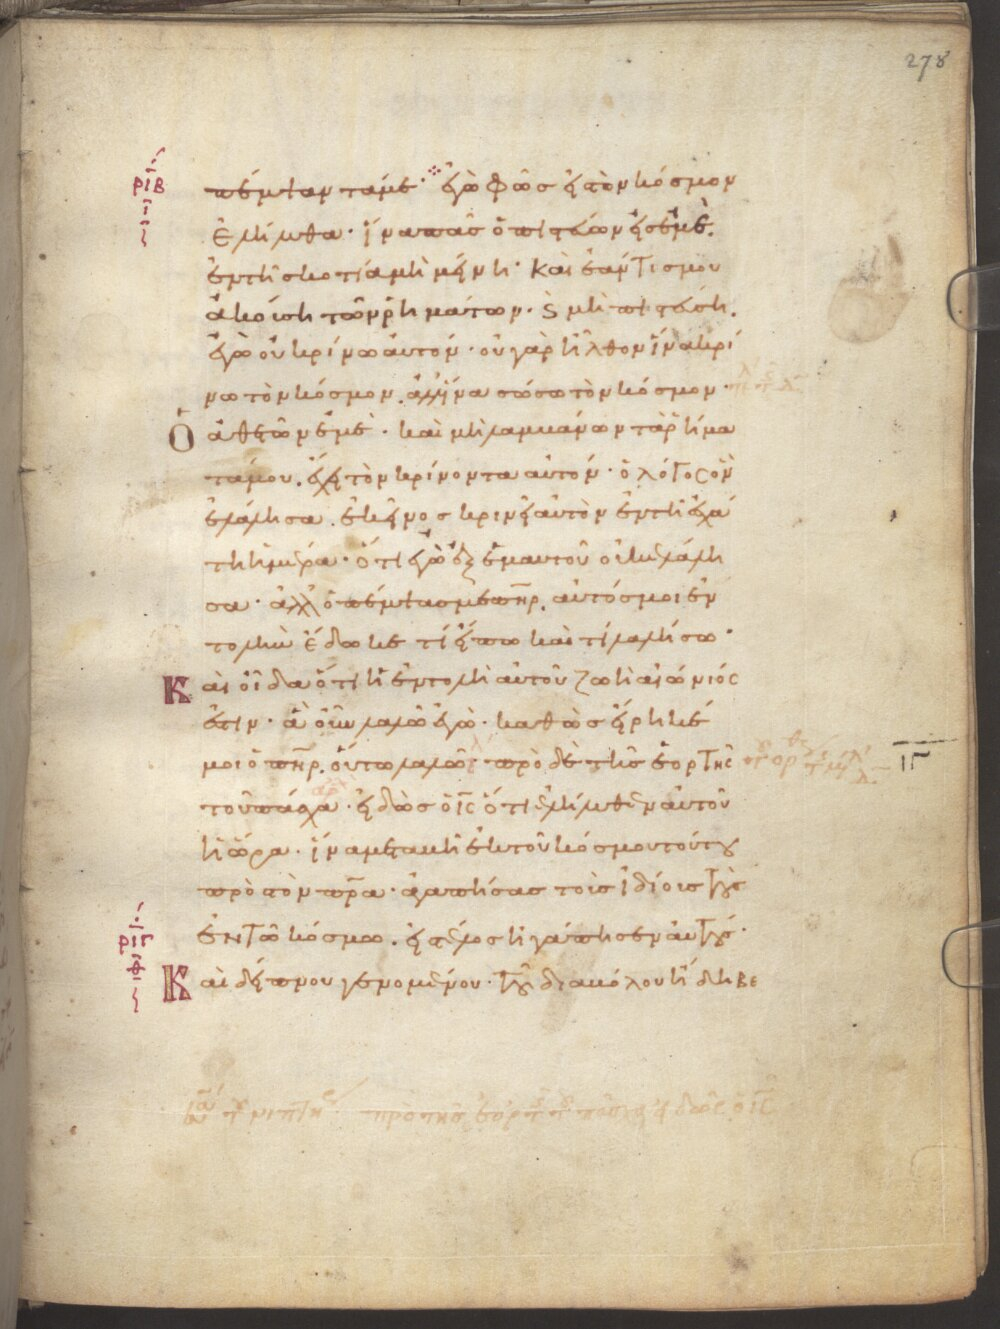 278
ριβ πέμψαντάμε· ἐγὼ φῶς εἰς τὸν κόσμον
ι ἐλήλυθα· ἵνα πᾶς ὁ πιστεύων εἰς ἐμὲ.
ἐν τῆ σκοτία μὴ μείνη· Καὶ ἐάν τις μου
ἀκούση τῶν ῥημάτων· ϛ μὴ πιστεύση.
ἐγὼ οὐ κρίνω αὐτόν· οὐ γὰρ ἦλθον ἵνα κρί
νω τὸν κόσμον. ἀλλ ἵνα σώσω τὸν κόσμον·
Ὁ ἀθετῶν ἐμὲ· καὶ μὴ λαμβάνων τὰ ῥήμα
τά μου. ἔχει τὸν κρίνοντα αὐτόν· ὁ λόγος ὃν
ἐλάλησα. ἐκεῖνος κρινεῖ αὐτὸν ἐν τῆ ἐσχά
τη ἡμέρα· ὅτι ἐγὼ ἐξ ἐμαυτοῦ οὐκ ἐλάλη
σα· ἀλλ ὁ πέμψας με πηρ. αὐτός μοι ἐν
τολὴν ἔδωκε τί εἴπω καὶ τί λαλήσω·
Καὶ οἶδα ὅτι ἡ ἐντολὴ αὐτοῦ ζωὴ αἰώνιός
ἐστιν· ἃ οὖν λαλῶ ἐγὼ· καθὼς εἴρηκέ
μοι ὁ πηρ. οὕτω λαλῶ· πρὸ δὲ τῆς ἑορτῆς
ΙΓ
τοῦ πάσχα· εἰδὼς ὁ ις ὅτι ἐλήλυθεν αὐτοῦ
ἡ ὥρα· ἵνα μεταβῆ ἐκ τοῦ κόσμου τούτου
πρὸς τὸν πρα· ἀγαπήσας τοὺς ἰδίους τοὺς
ἐν τῶ κόσμω. εἰς τέλος ἠγάπησεν αὐτούς·
ριγ Καὶ δείπνου γενομένου· τοῦ διαβόλου ἤδη βε
πρὸ τῆς ἑορτῆς τοῦ πάσχα εἰδὼς ὁ ις